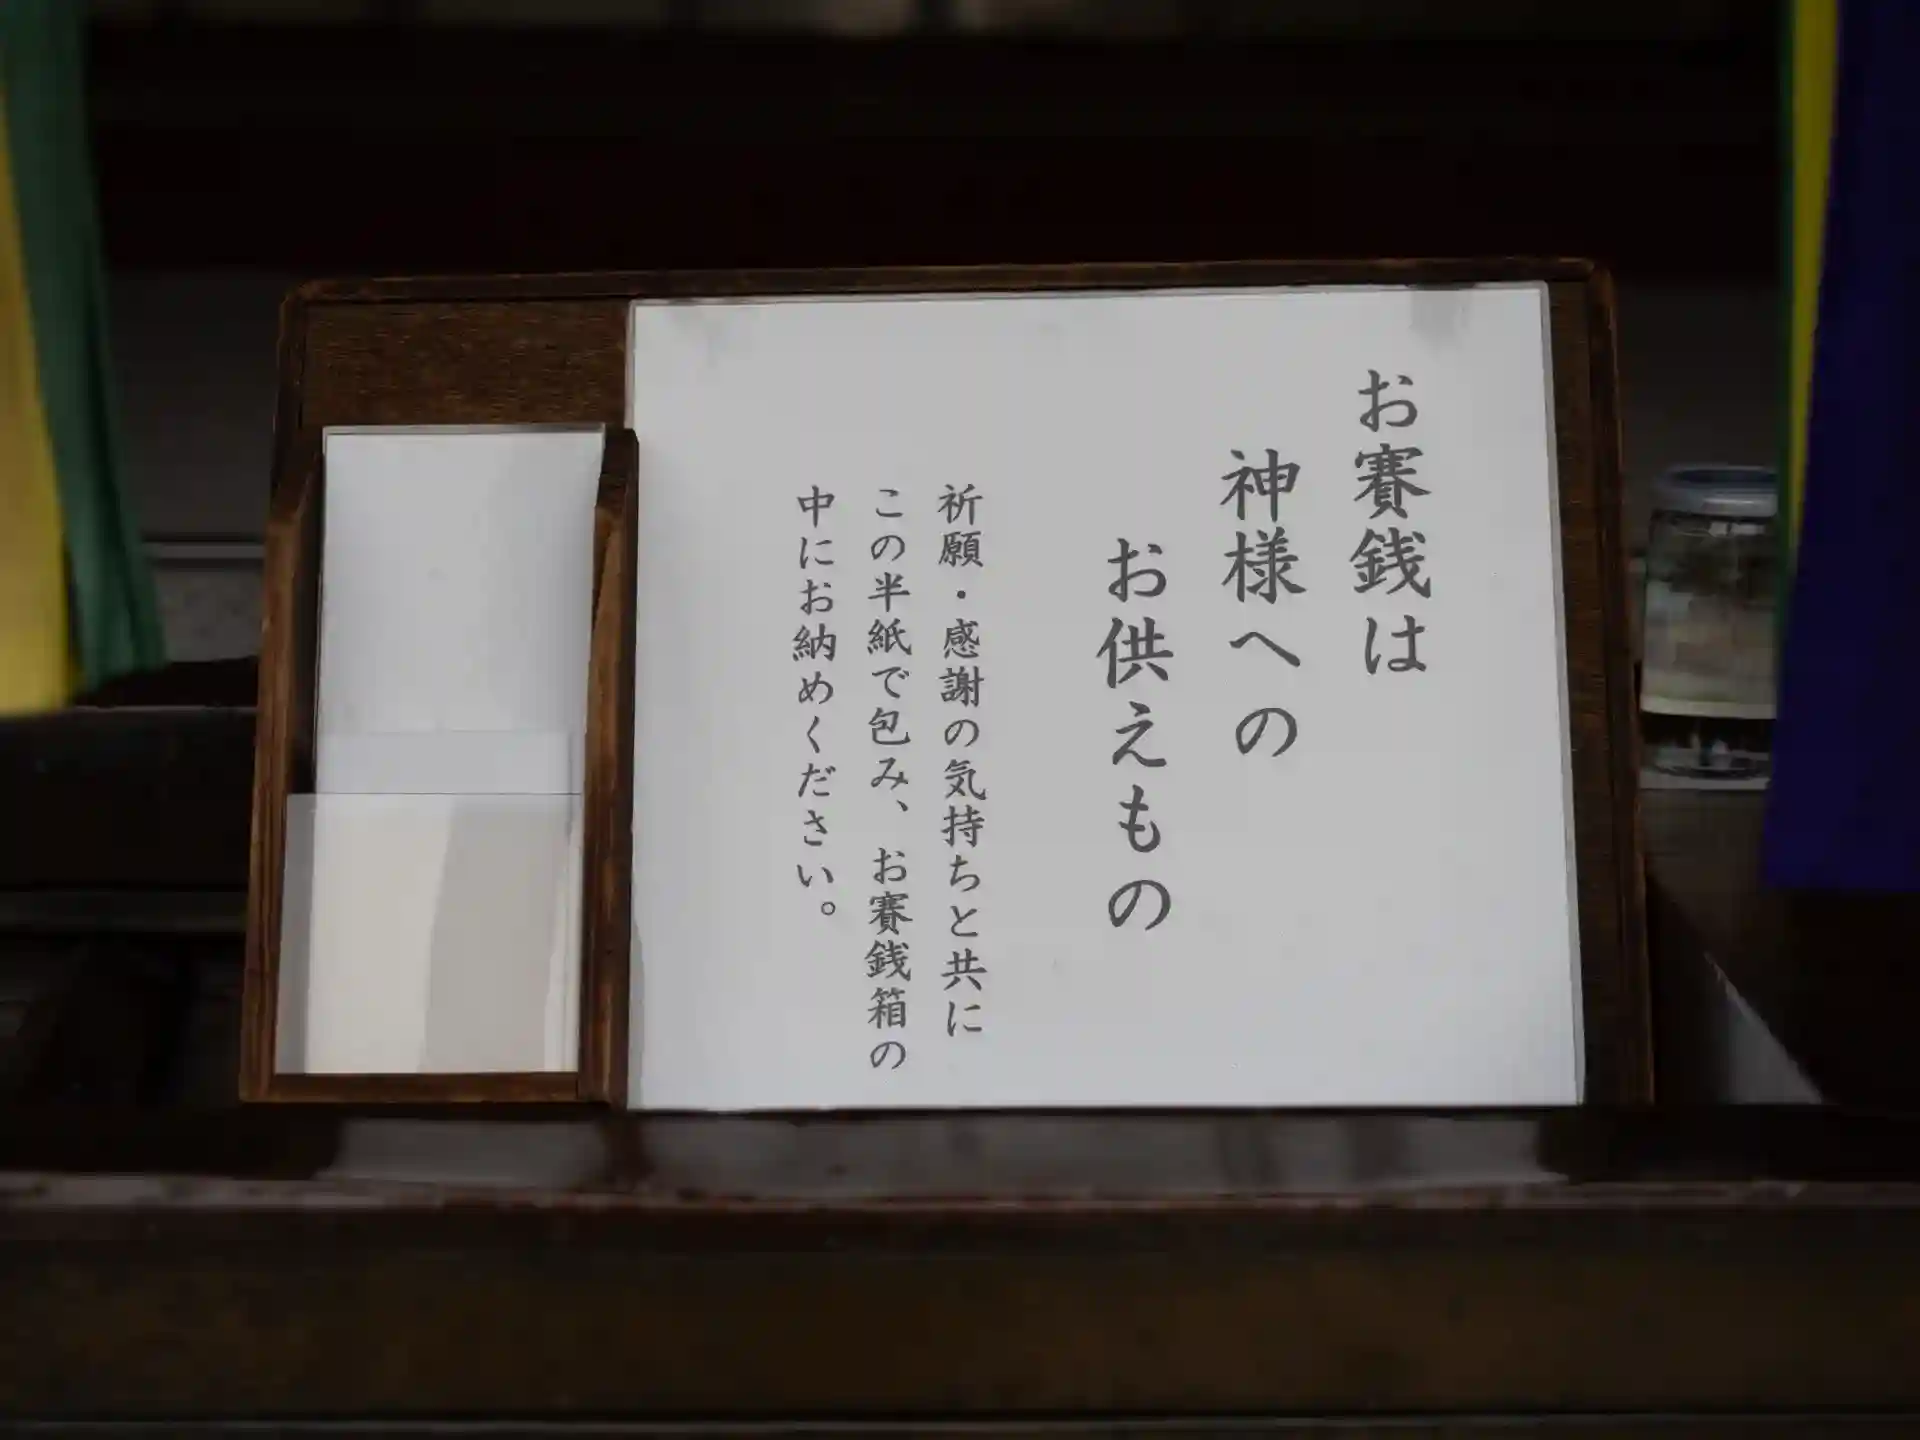 お賽銭は
神様への
お供えもの
祈願・感謝の気持ちと共に
この半紙で包み、お賽銭箱の
中にお納めください。